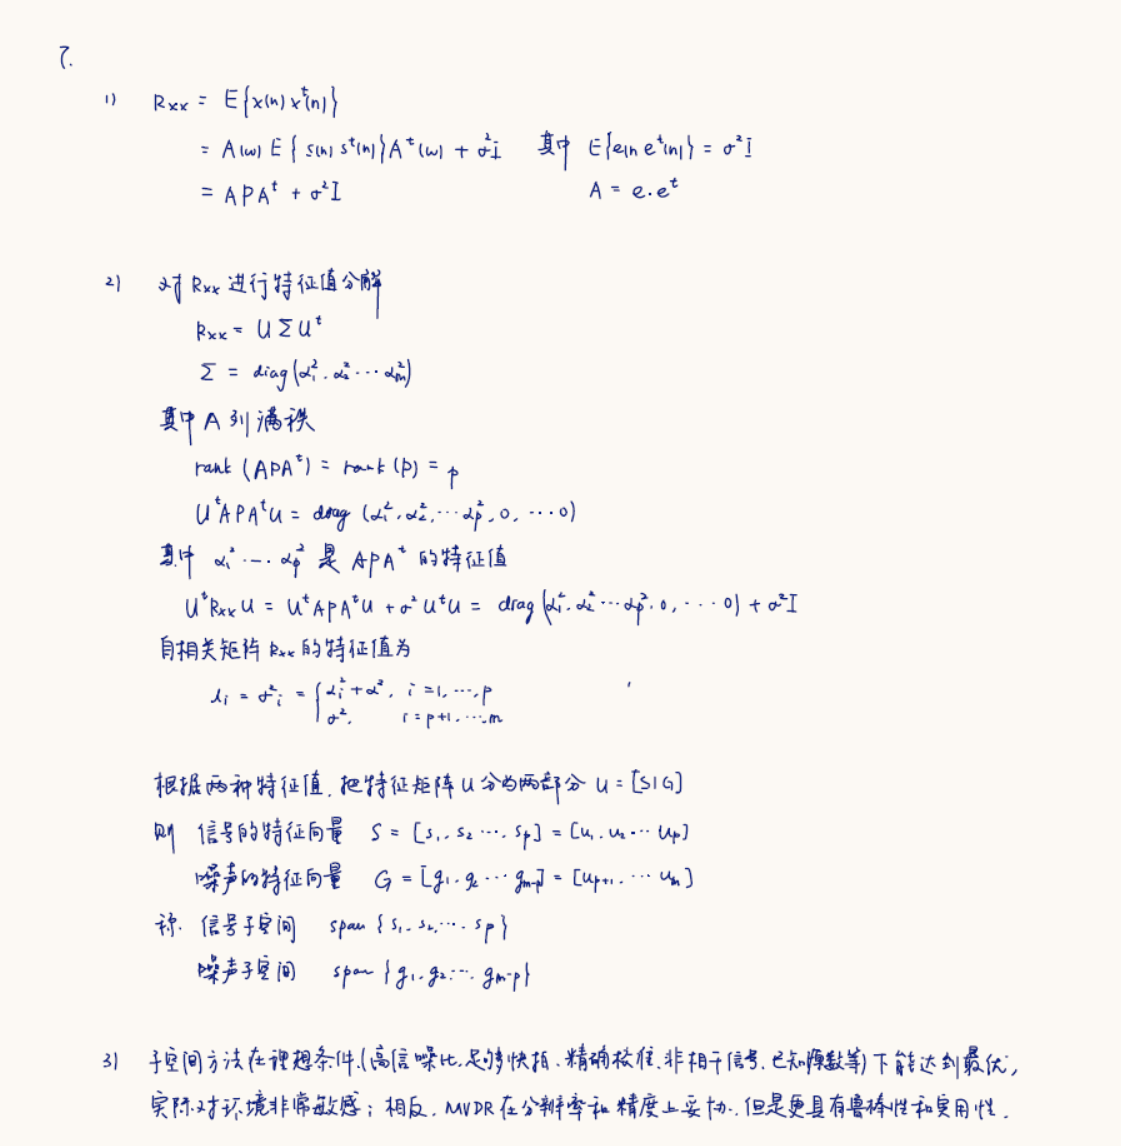 7.
1) Rxx = E{x(n) xᵗ(n)}
= A(ω) E{ s(n) sᵗ(n)}Aᵗ(ω) + σ²I 其中 E{e(n eᵗ(n)} = σ²I
= APAᵗ + σ²I A = e.eᵗ
2) 对 Rxx 进行特征值分解
Rxx = UΣUᵗ
Σ = diag(α₁², α₂² ⋯ αm²)
其中 A 列满秩
rank (APAᵗ) = rank (P) = p
UᵗAPAᵗU = diag (α₁², α₂², ⋯ αp², 0, ⋯ 0)
其中 α₁² ⋯ αp² 是 APAᵗ 的特征值
UᵗRxxU = UᵗAPAᵗU + σ²UᵗU = diag (α₁², α₂² ⋯ αp², 0, ⋯ 0) + σ²I
自相关矩阵 Rxx 的特征值为
λi = σ²i = { αi² + α², i = 1, ⋯, p
σ², i = p+1, ⋯, m
根据两种特征值, 把特征矩阵 U 分为两部分 U = [S|G]
则 信号的特征向量 S = [s₁, s₂ ⋯, sp] = [u₁, u₂ ⋯ up]
噪声的特征向量 G = [g₁, g₂ ⋯ gm-p] = [up+1, ⋯ um]
称. 信号子空间 span {s₁, s₂, ⋯, sp}
噪声子空间 span {g₁, g₂, ⋯, gm-p}
3) 子空间方法在理想条件(高信噪比,足够快拍、精确校准、非相干信号、已知源数等)下能达到最优,
实际对环境非常敏感; 相反, MVDR 在分辨率和精度上妥协, 但是更具有鲁棒性和实用性.